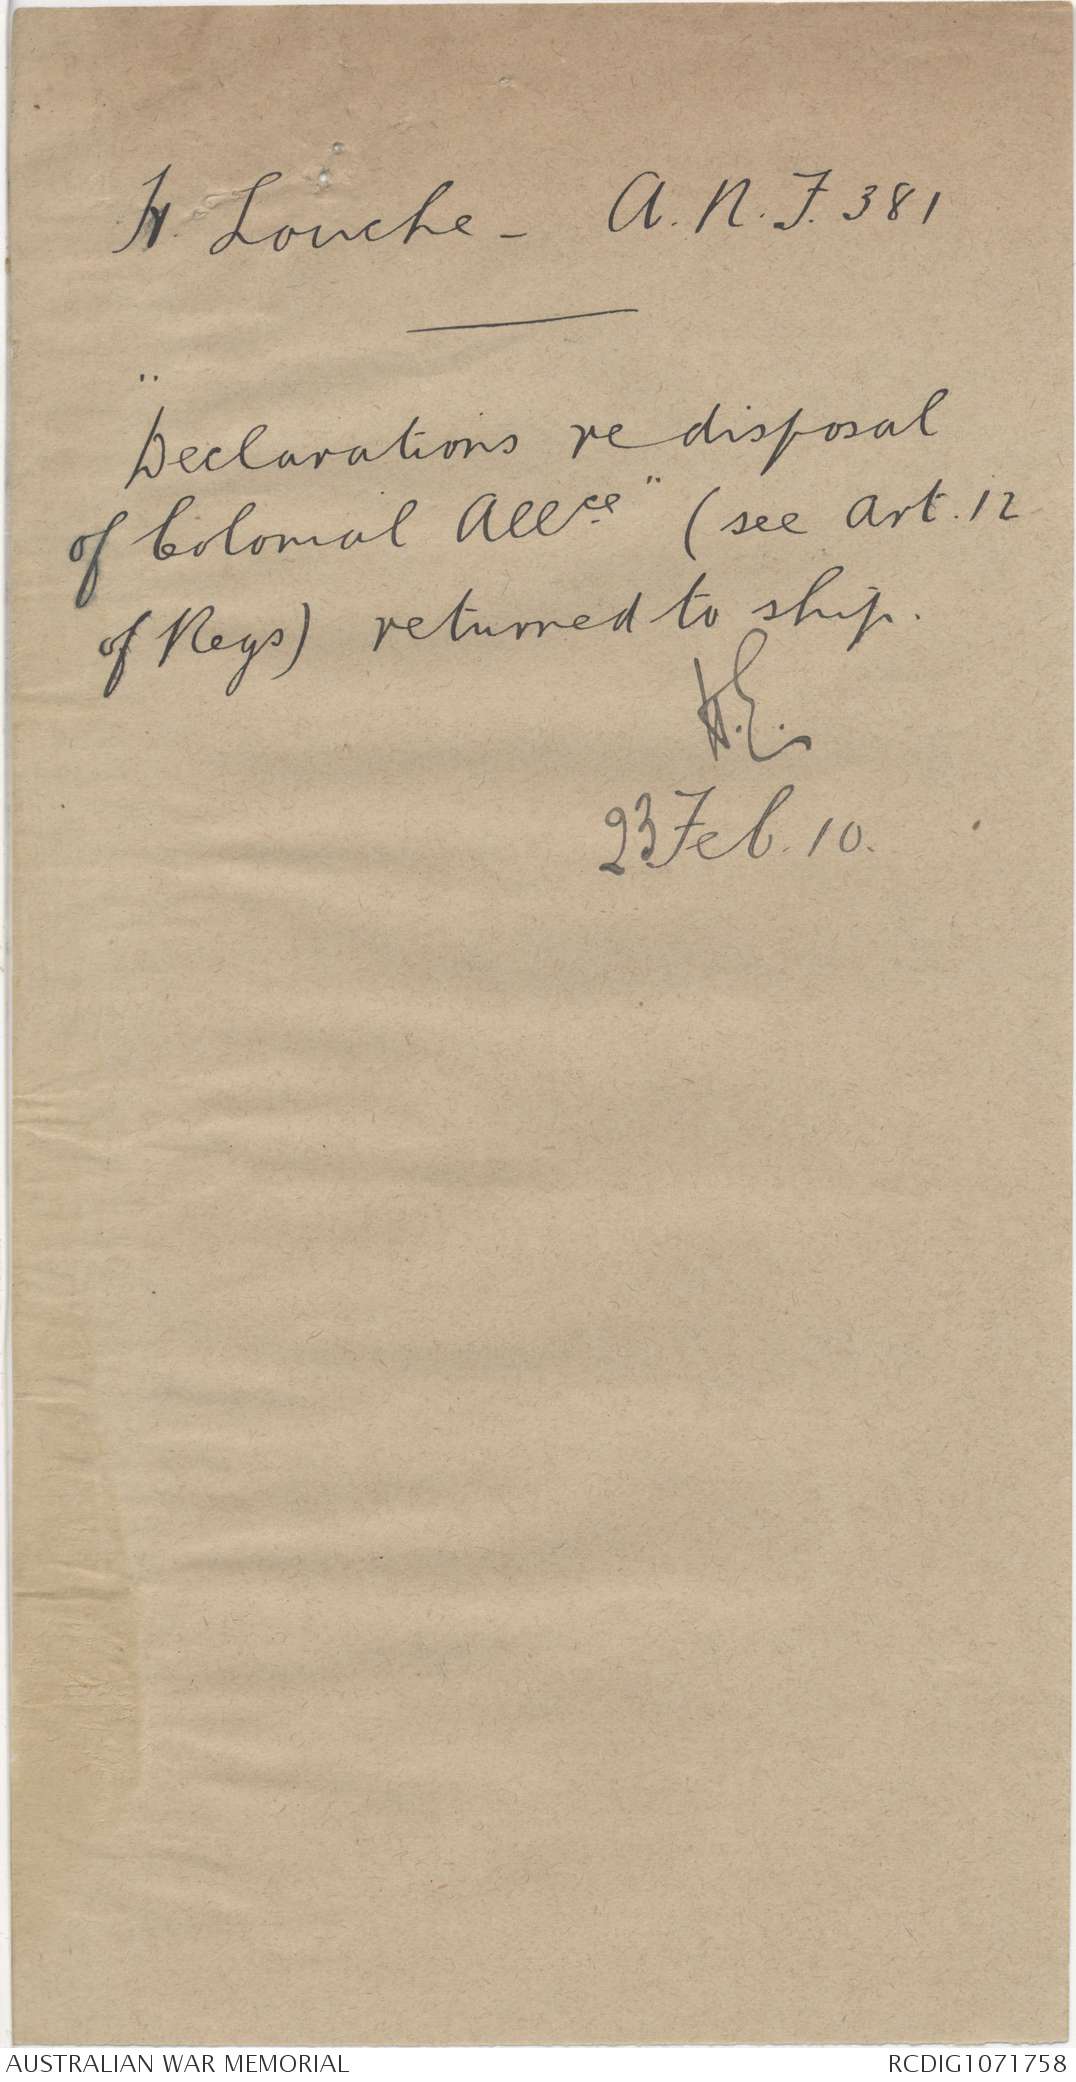 H. Louche - A.N.F. 381
"Declarations re disposal
of Colonial Allce" (see Art. 12
of Regs) returned to ship.
H.E.
23 Feb. 10.
AUSTRALIAN WAR MEMORIAL
RCDIG1071758